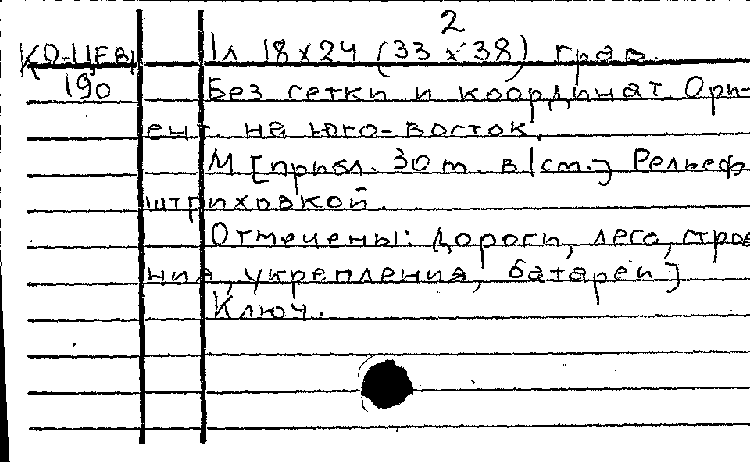 2
1л 18х24 (33 х 38) грав.
190
Без сетки и координат. Ори-
ент. на юго-восток.
М [прибл. 30 т. в 1 см.] Рельеф
штриховкой.
Отмечены: дороги, леса, строе
ния, укрепления, батареи]
Ключ.